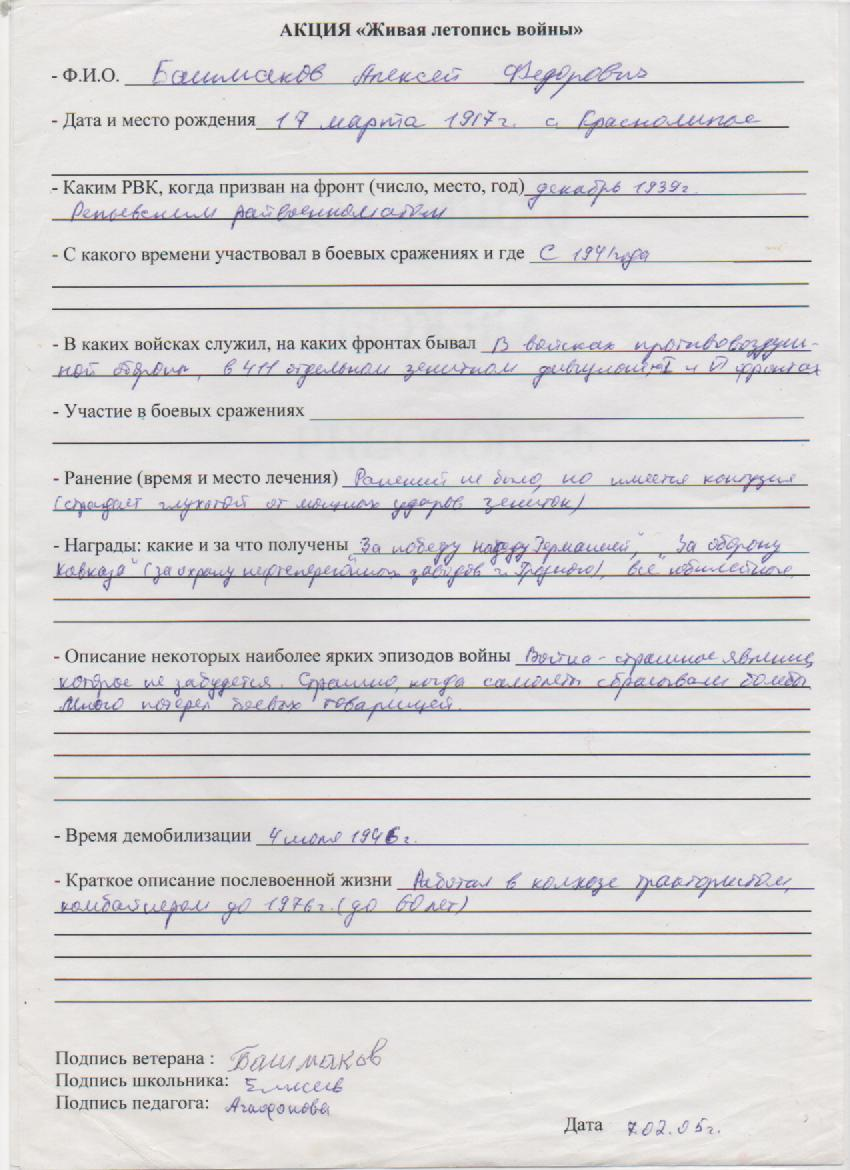 АКЦИЯ «Живая летопись войны»
- Ф.И.О. Башмаков Алексей Федорович
- Дата и место рождения 17 марта 1917г. с. Краснолипье
- Каким РВК, когда призван на фронт (число, место, год) декабрь 1939г.
Репьевским райвоенкоматом
- С какого времени участвовал в боевых сражениях и где С 1941 года
- В каких войсках служил, на каких фронтах бывал В войсках противовоздуш-
ной обороны, в 411 отдельном зенитном дивизионе, I и VI фронтах
- Участие в боевых сражениях
- Ранение (время и место лечения) Ранений не было, но имеется контузия
(страдает глухотой от мощных ударов зениток)
- Награды: какие и за что получены "За победу над Германией", "За оборону
Кавказа" (за охрану заводов г. Грозного), все юбилейные
- Описание некоторых наиболее ярких эпизодов войны Война - страшное явление,
которое не забудется. Страшно, когда самолеты сбрасывали бомбы
Много потерял боевых товарищей.
- Время демобилизации 4 1946г.
- Краткое описание послевоенной жизни Работал в колхозе трактористом,
комбайнером до 1976г. (до 60 лет)
Подпись ветерана : Башмаков
Подпись школьника: Елисеев
Подпись педагога: Агафонова
Дата 7.02.05г.